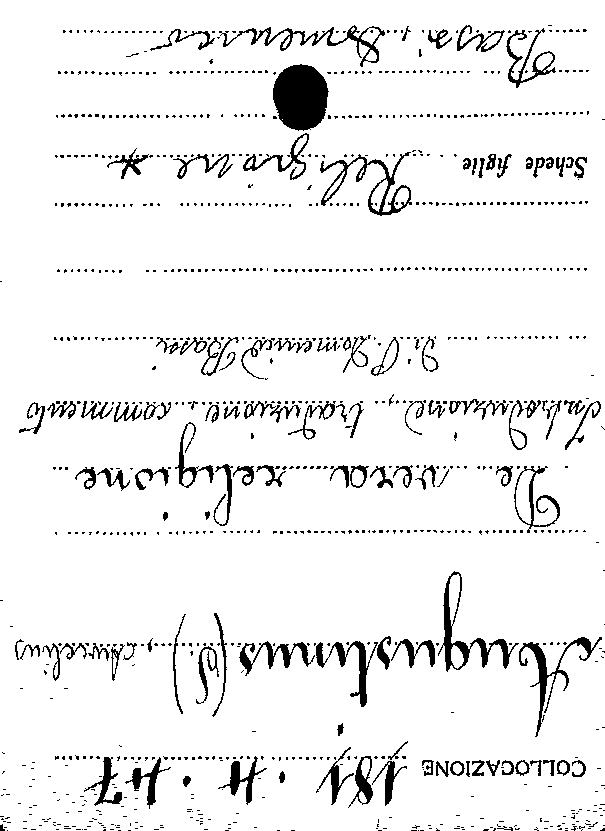 COLLOCAZIONE 181. H. 47
Augustinus (S.), Aurelius
De vera religione
Introduzione, traduzione, commento
di P. Domenico Bassi
Schede figlie Religione *
Bassi, Domenico